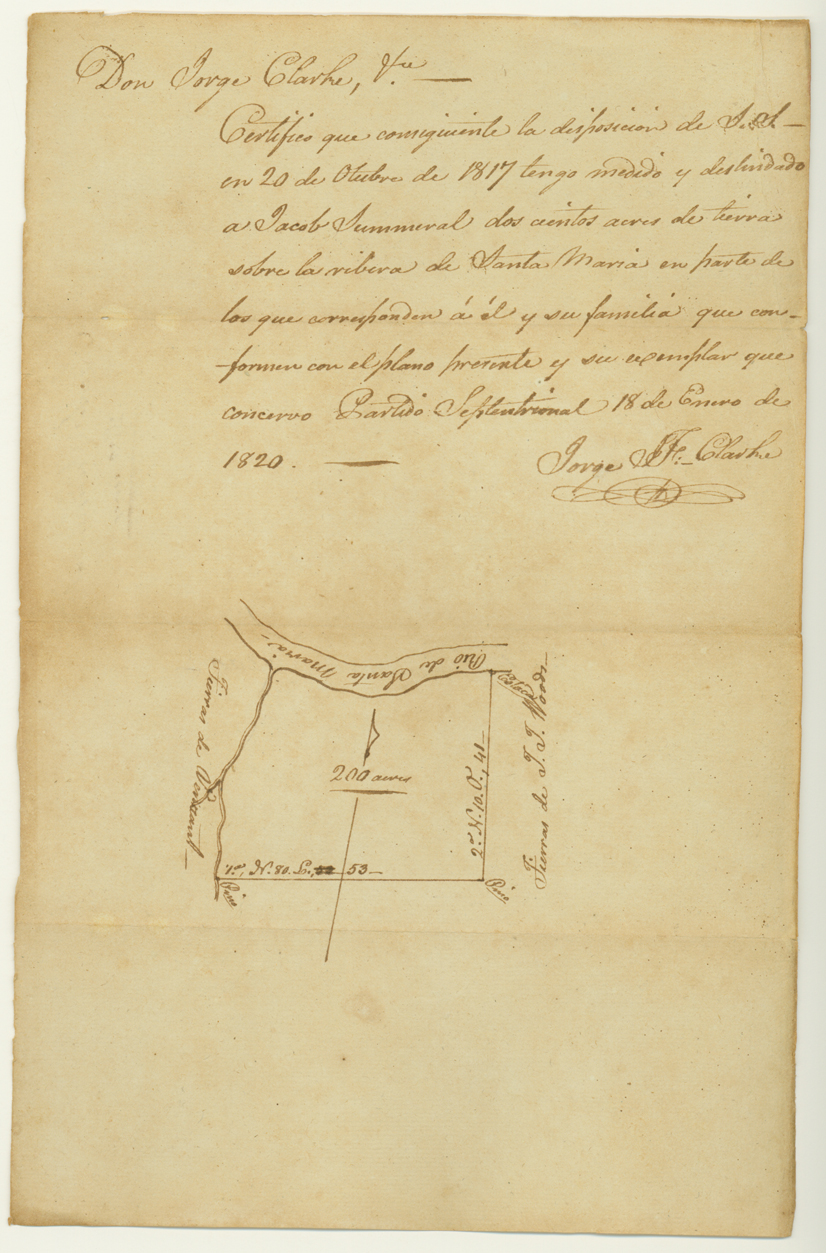 Don Jorge Clarke, &ca
Certifico que consiguiente la disposicion de S.S.
en 20 de Otubre de 1817 tengo medido y deslindado
a Jacob Summeral dos cientos acres de tierra
sobre la ribera de Santa Maria en parte de
los que corresponden á él y su familia que con-
formen con el plano presente y su exemplar que
concervo Partido Septentrional 18 de Enero de
1820.
Jorge J. F. Clarke
Rio de Santa Maria
Tierras de
Tierras de J. J. Woods
200 acres
2a, N. 10. O., 41
1a, N. 80. E., 53
Pino
Pino